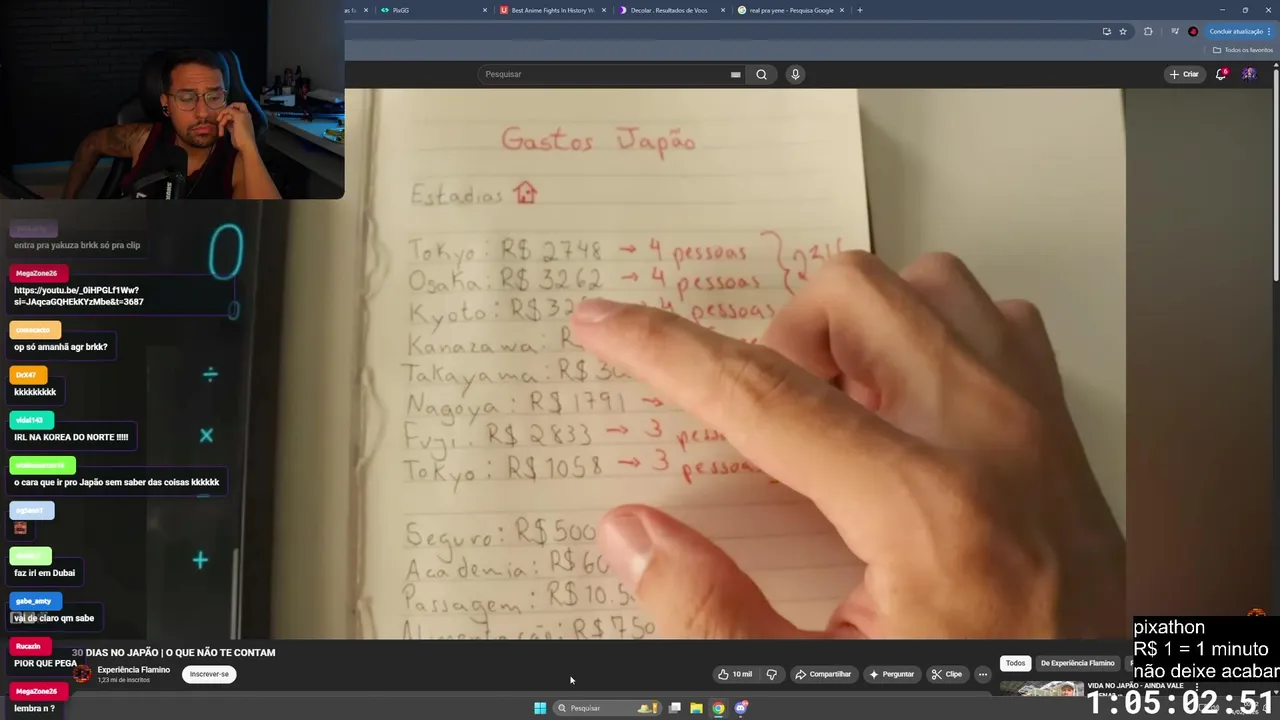 PixGG
Best Anime Fights In History W
Decolar . Resultados de Voos
real pra yene – Pesquisa Google
Concluir atualização
Todos os favoritos
Pesquisar
Criar
6
Gastos Japão
Estadias
Tokyo: R$ 2748 → 4 pessoas
Osaka: R$ 3262 → 4 pessoas
Kyoto: R$ 32 pessoas
Kanazawa:
Takayama: R$
Nagoya: R$ 1791 →
Fuji: R$ 2833 → 3
Tokyo: R$ 1058 → 3 pessoas
Seguro: R$ 500
Academia: R$
Passagem: R$ 10.5
R$ 750
0
÷
×
+
entra pra yakuza brkk só pra clip
MegaZone26
https://youtu.be/_0iHPGLf1Ww?
si=JAqcaGQHEkKYzMbe&t=3687
op só amanhã agr brkk?
DrX47
kkkkkkkkk
vidal143
IRL NA KOREA DO NORTE !!!!!
o cara que ir pro Japão sem saber das coisas kkkkkk
faz irl em Dubai
gabe_amty
vai de claro qm sabe
Rucazin
PIOR QUE PEGA
MegaZone26
lembra n ?
30 DIAS NO JAPÃO | O QUE NÃO TE CONTAM
Experiência Flamino
1,23 mi de inscritos
Inscrever-se
10 mil
Compartilhar
Perguntar
Clipe
Todos
De Experiência Flamino
VIDA NO JAPÃO - AINDA VALE
pixathon
R$ 1 = 1 minuto
não deixe acabar
1:05:02:51
Pesquisar